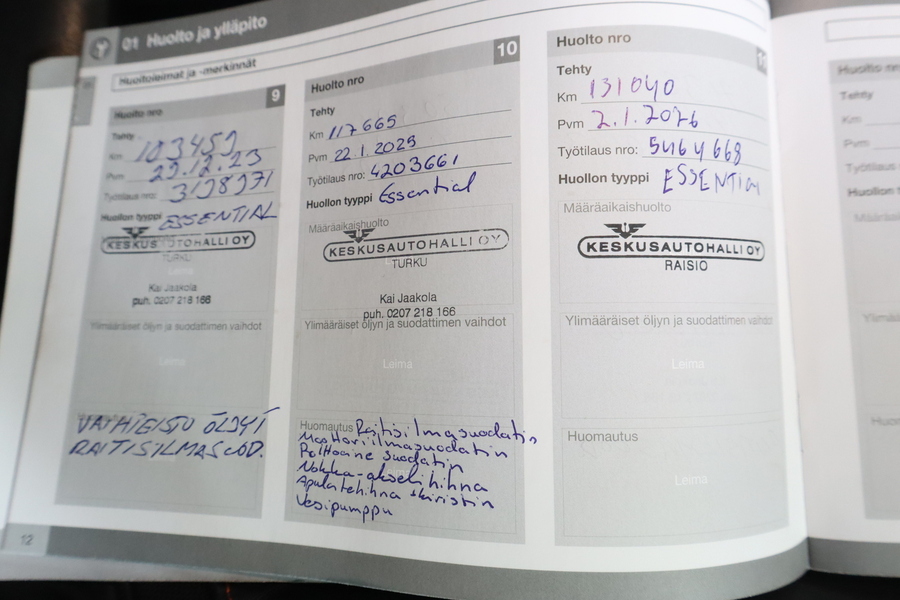 01 Huolto ja ylläpito
Huoltoleimat ja -merkinnät
Huolto nro 9
Tehty
Km 103459
Pvm 29.12.23
Työtilaus nro: 3198971
Huollon tyyppi ESSENTIAL
KESKUSAUTOHALLI OY
TURKU
Leima
Kai Jaakola
puh. 0207 218 166
Ylimääräiset öljyn ja suodattimen vaihdot
Leima
VAIHTEISTO ÖLJYT
RAITISILMASUOD.
12
Huolto nro 10
Tehty
Km 117665
Pvm 22.1.2025
Työtilaus nro: 4203661
Huollon tyyppi Essential
Määräaikaishuolto
KESKUSAUTOHALLI OY
TURKU
Kai Jaakola
puh. 0207 218 166
Ylimääräiset öljyn ja suodattimen vaihdot
Leima
Huomautus Raitisilmasuodatin
Moottoriilmasuodatin
Polttoaine suodatin
Nokka-akselihihna
Apulaitehihna + kiristin
Vesipumppu
Huolto nro 11
Tehty
Km 131040
Pvm 2.1.2026
Työtilaus nro: 5464668
Huollon tyyppi ESSENTIAL
Määräaikaishuolto
KESKUSAUTOHALLI OY
RAISIO
Ylimääräiset öljyn ja suodattimen vaihdot
Leima
Huomautus
Leima
Huolto nro
Tehty
Km
Pvm